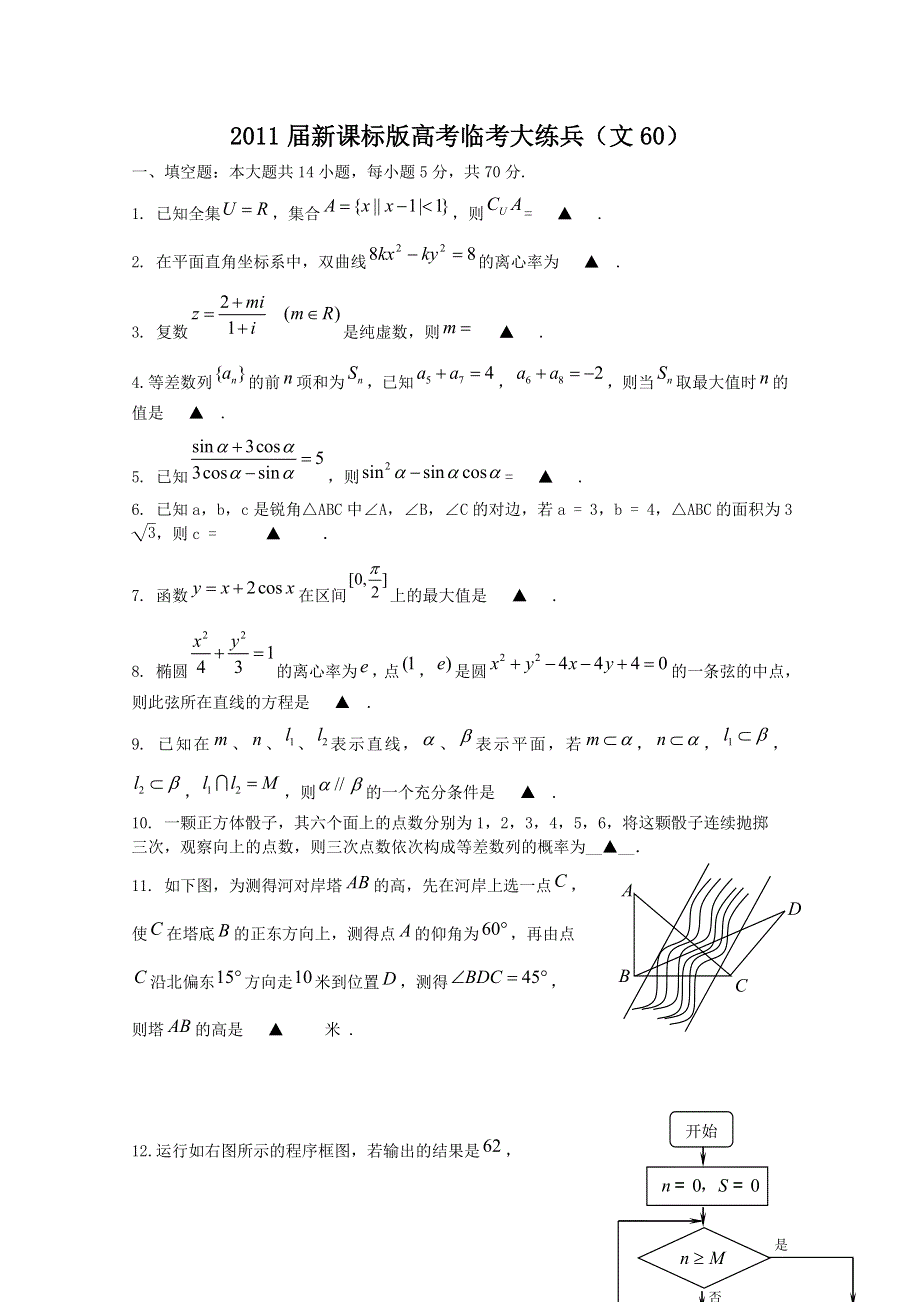 2011届新课标版高考临考大练兵（文60）
一、填空题：本大题共14小题，每小题5分，共70分.
1. 已知全集$U=R$，集合$A=\{x||x-1|<1\}$，则$C_U A$= ▲ .
2. 在平面直角坐标系中，双曲线$8kx^2-ky^2=8$的离心率为 ▲ .
3. 复数$z=\frac{2+mi}{1+i}\quad(m\in R)$是纯虚数，则$m=$ ▲ .
4.等差数列$\{a_n\}$的前$n$项和为$S_n$，已知$a_5+a_7=4$，$a_6+a_8=-2$，则当$S_n$取最大值时$n$的
值是 ▲ .
5. 已知$\frac{\sin\alpha+3\cos\alpha}{3\cos\alpha-\sin\alpha}=5$，则$\sin^2\alpha-\sin\alpha\cos\alpha$= ▲ .
6. 已知a，b，c是锐角△ABC中∠A，∠B，∠C的对边，若a = 3，b = 4，△ABC的面积为3
$\sqrt{3}$，则c = ▲ .
7. 函数$y=x+2\cos x$在区间$[0,\frac{\pi}{2}]$上的最大值是 ▲ .
8. 椭圆$\frac{x^2}{4}+\frac{y^2}{3}=1$的离心率为$e$，点$(1，e)$是圆$x^2+y^2-4x-4y+4=0$的一条弦的中点，
则此弦所在直线的方程是 ▲ .
9. 已知在$m$、$n$、$l_1$、$l_2$表示直线，$\alpha$、$\beta$表示平面，若$m\subset\alpha$，$n\subset\alpha$，$l_1\subset\beta$，
$l_2\subset\beta$，$l_1\bigcap l_2=M$，则$\alpha//\beta$的一个充分条件是 ▲ .
10. 一颗正方体骰子，其六个面上的点数分别为1，2，3，4，5，6，将这颗骰子连续抛掷
三次，观察向上的点数，则三次点数依次构成等差数列的概率为__▲__.
11. 如下图，为测得河对岸塔$AB$的高，先在河岸上选一点$C$，
使$C$在塔底$B$的正东方向上，测得点$A$的仰角为$60°$，再由点
$C$沿北偏东$15°$方向走$10$米到位置$D$，测得$\angle BDC=45°$，
则塔$AB$的高是 ▲ 米 .
A
D
B
C
12.运行如右图所示的程序框图，若输出的结果是$62$，
开始
n = 0，S = 0
n ≥ M
是
否